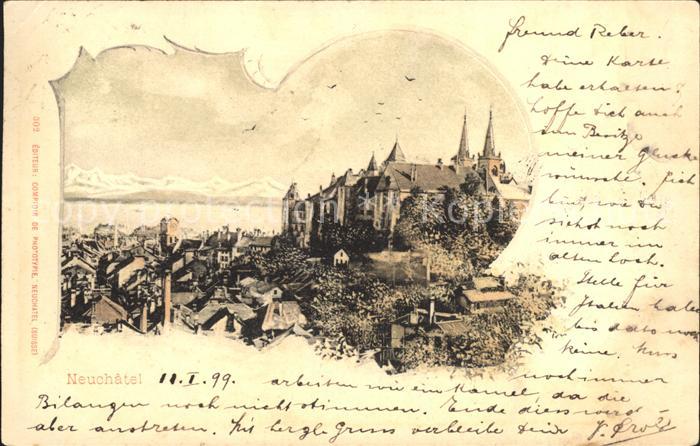 Freund Reber.
Deine Karte
habe erhalten?
hoffe dich auch
zum Besitze
meiner Glück
wünsche. Ich
bin, wie du
siehst noch
immer im
alten Loch.
Stelle für
Italien habe
bis dato noch
keine. Muss
noch immer
302 ÉDITEUR: COMPTOIR DE PHOTOTYPIE, NEUCHÂTEL (SUISSE)
Neuchâtel 11.I.99. arbeiten wie ein Kamel, da die
Bilanzen noch nicht stimmen. Ende dies werd
aber austreten. Mit herzl. Gruss verbleibe dein